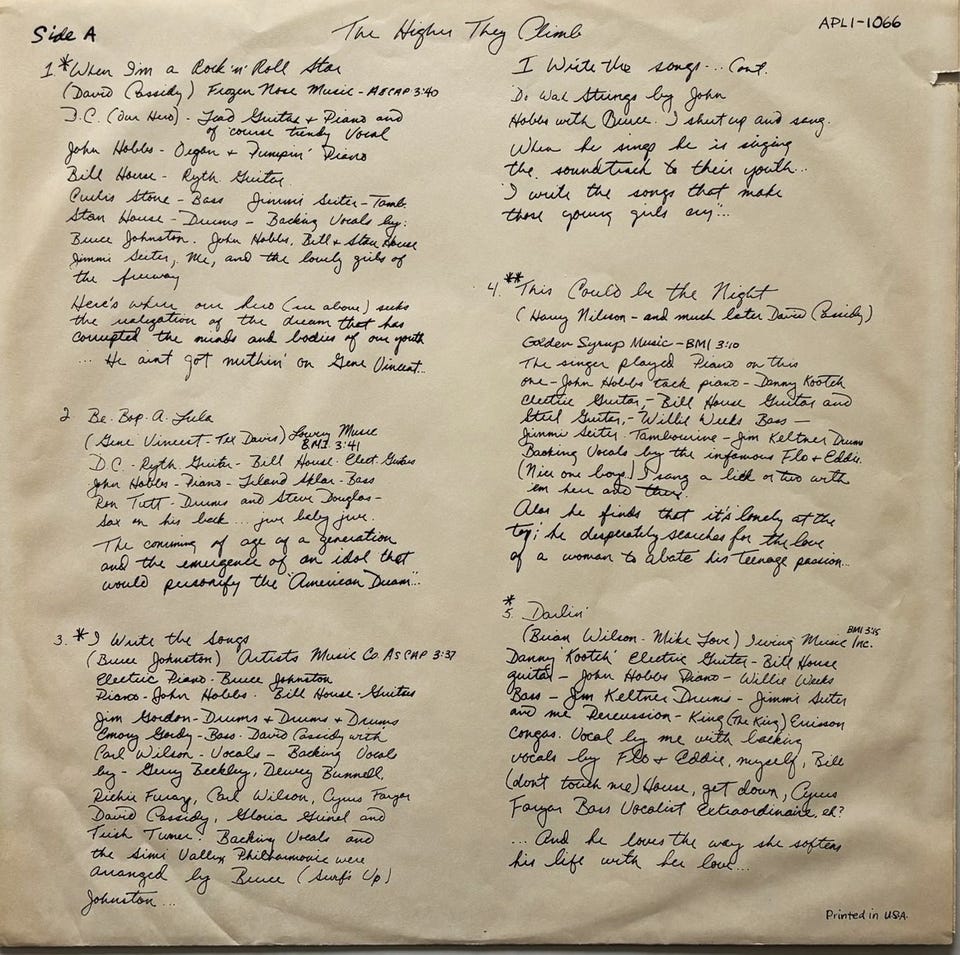 Side A
The Higher They Climb
APL1-1066
1. *When I'm a Rock 'n' Roll Star
(David Cassidy) Frozen Nose Music - ASCAP 3:40
D.C. (Our Hero) - Lead Guitar + Piano and
of course trendy Vocal
John Hobbs - Organ + Pumpin' Piano
Bill House - Ryth Guitar
Curtis Stone - Bass Jimmi Seiter - Tamb.
Stan House - Drums - Backing Vocals by:
Bruce Johnston, John Hobbs, Bill + Stan House
Jimmi Seiter, Me, and the lovely girls of
the freeway
Here's where our hero (see above) seeks
the realization of the dream that has
corrupted the minds and bodies of our youth
... He aint got nuthin' on Gene Vincent...
2. Be-Bop-A-Lula
(Gene Vincent - Tex Davis) Lowery Music
BMI 3:41
D.C. - Ryth. Guitar - Bill House - Elect. Guitars
John Hobbs - Piano - Leland Sklar - Bass
Ron Tutt - Drums and Steve Douglas -
Sax on his back ... jive baby jive.
The comming of age of a generation
and the emergence of an idol that
would personify the "American Dream"...
3. *I Write the Songs
(Bruce Johnston) Artists Music Co ASCAP 3:37
Electric Piano - Bruce Johnston
Piano - John Hobbs - Bill House - Guitars
Jim Gordon - Drums + Drums + Drums
Emory Gordy - Bass - David Cassidy with
Carl Wilson - Vocals - Backing Vocals
by - Gerry Beckley, Dewey Bunnell,
Richie Furay, Carl Wilson, Cyrus Faryar
David Cassidy, Gloria Grinel and
Trish Turner. Backing Vocals and
the Simi Valley Philharmonic were
arranged by Bruce (Surf's Up)
Johnston...
I Write the songs... Cont.
Do Wah Strings by John
Hobbs with Bruce. I shut up and sang.
When he sings he is singing
the soundtrack to their youth...
"I write the songs that make
those young girls cry"...
4. **This Could be the Night
(Harry Nilsson - and much later David Cassidy)
Golden Syrup Music - BMI 3:10
The singer played Piano on this
one - John Hobbs tack piano - Danny Kootch
Electric Guitar, - Bill House Guitar and
Steel Guitar, - Willie Weeks Bass -
Jimmi Seiter Tambourine - Jim Keltner Drums
Backing Vocals by the infamous Flo + Eddie.
(Nice one boys) I sang a lick or two with
'em here and there.
Alas he finds that it's lonely at the
top; he desperately searches for the love
of a woman to abate his teenage passion...
*
5. Darlin'
(Brian Wilson - Mike Love) Irving Music Inc.
BMI 3:15
Danny 'Kootch' Electric Guitar - Bill House
guitar - John Hobbs Piano - Willie Weeks
Bass - Jim Keltner Drums - Jimmi Seiter
and me Percussion - King (The King) Errisson
Congas. Vocal by me with backing
vocals by Flo + Eddie, myself, Bill
(don't touch me) House, get down, Cyrus
Faryar Bass Vocalist Extraordinaire, eh?
... And he loves the way she softens
his life with her love...
Printed in USA.